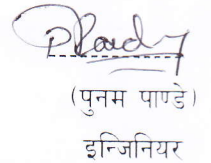 (पुनम पाण्डे)
इन्जिनियर